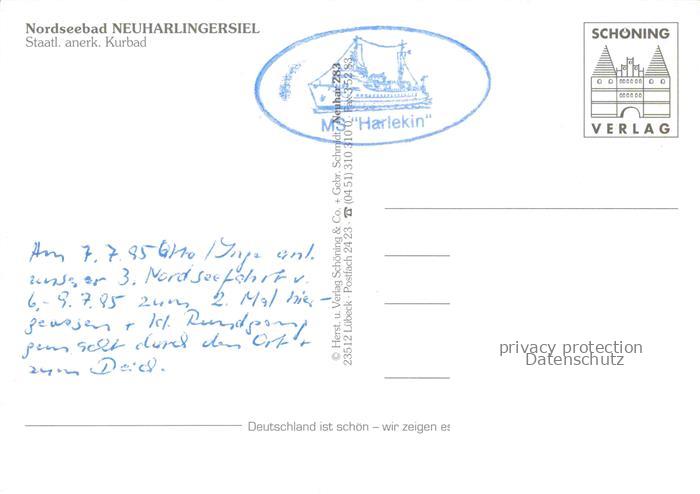 Nordseebad NEUHARLINGERSIEL
Staatl. anerk. Kurbad
SCHÖNING
VERLAG
MS "Harlekin"
© Herst. u. Verlag Schöning & Co. + Gebr. Schmidt
23512 Lübeck · Postfach 24 23 · ☎ (04 51) 310 310
Am 7.7.95 Otto/Inge anl.
unserer 3. Nordseefahrt v.
6.-9.7.95 zum 2. Mal hier
gewesen + kl. Rundgang
gemacht durch den Ort +
zum Deich.
privacy protection
Datenschutz
Deutschland ist schön – wir zeigen es